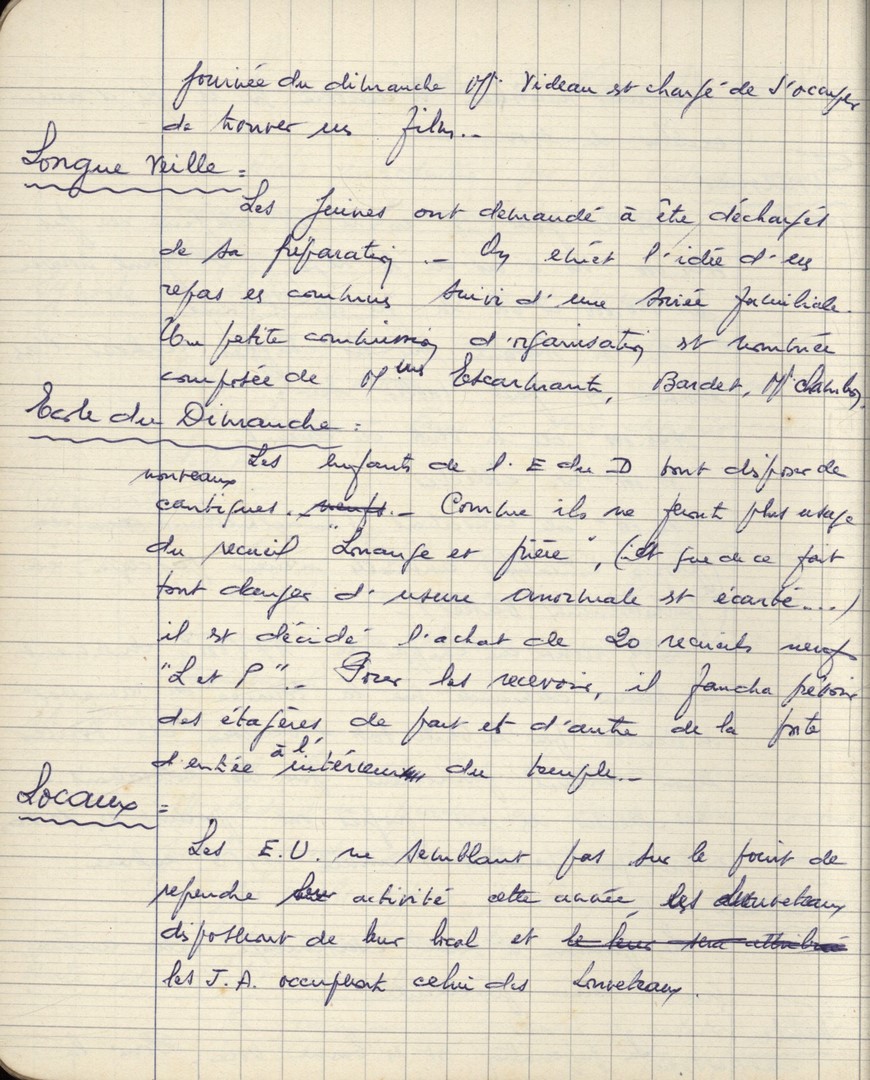 journée du dimanche Mr. Videau est chargé de s'occuper
de trouver un film..
Longue Veille =
Les Jeunes ont demandé à être déchargés
de sa préparation .- On émet l'idée d'un
repas en commun suivi d'une soirée familiale.
Une petite commission d'organisation est nommée
composée de Mmes Escarmant, Bardet, Mr
Ecole du Dimanche :
Les enfants de l. E du D vont disposer de
nouveaux
cantiques. neufs.- Comme ils ne feront plus usage
du recueil "Louange et prière", (et que de ce fait
tout danger d'usure anormale est écarté...)
il est décidé l'achat de 20 recueils neufs
"L et P".- Pour les recevoir, il faudra prévoir
des étagères de part et d'autre de la porte
d'entrée à l'intérieur du temple.-
Locaux =
Les E.U. ne semblant pas sur le point de
reprendre leur activité cette année, les louveteaux
disposeront de leur local et le leur sera attribué
les J.A. occuperont celui des Louveteaux.